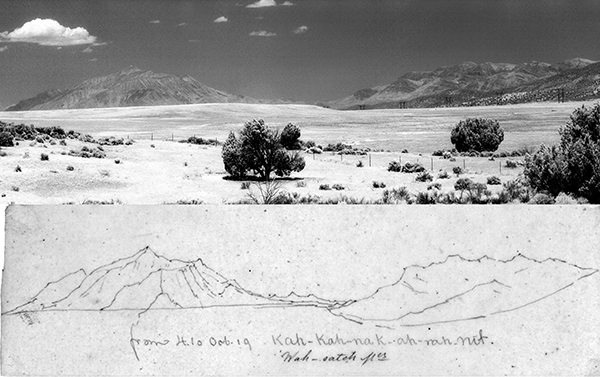 from H. 10 Oct. 19 Kah-Kah-nak-ah-rah mt.
Wah-satch